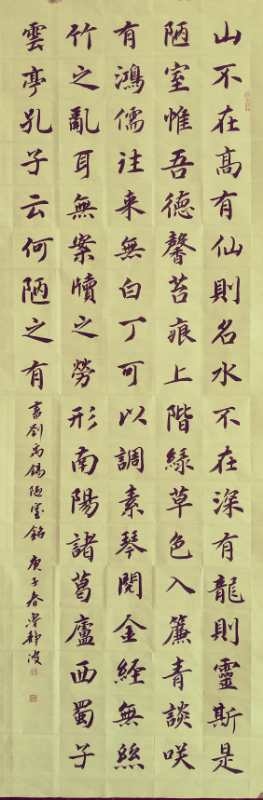 山不在高有仙則名水不在深有龍則靈斯是
陋室惟吾德馨苔痕上階緑草色入簾青談咲
有鴻儒往来無白丁可以調素琴閱金経無絲
竹之亂耳無案牘之勞形南陽諸葛廬西蜀子
雲亭孔子云何陋之有
書劉禹錫陋室銘 庚子春 靜波